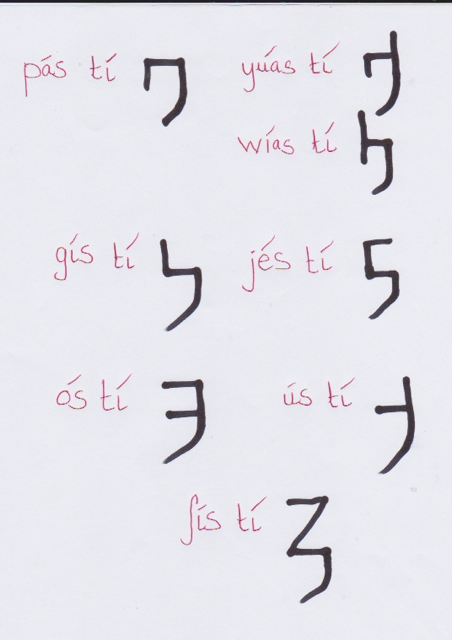 pás tí yúas tí
wías tí
gís tí jés tí
ós tí ús tí
ʃís tí